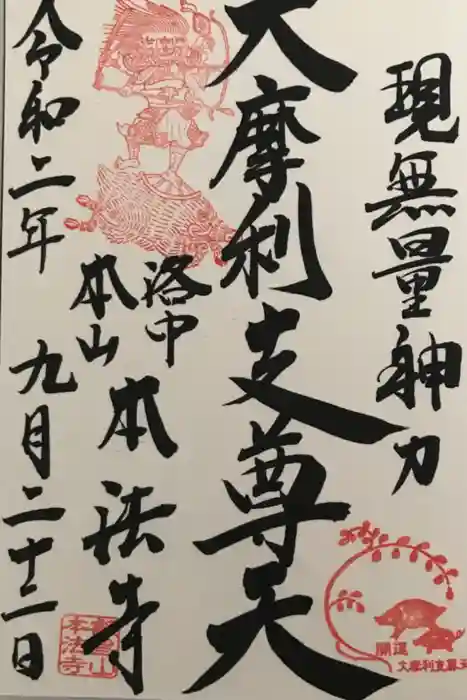 現無量神力
大摩利支尊天
洛中
本山
本法寺
令和二年九月二十二日
開運
大摩利支尊天
本法寺